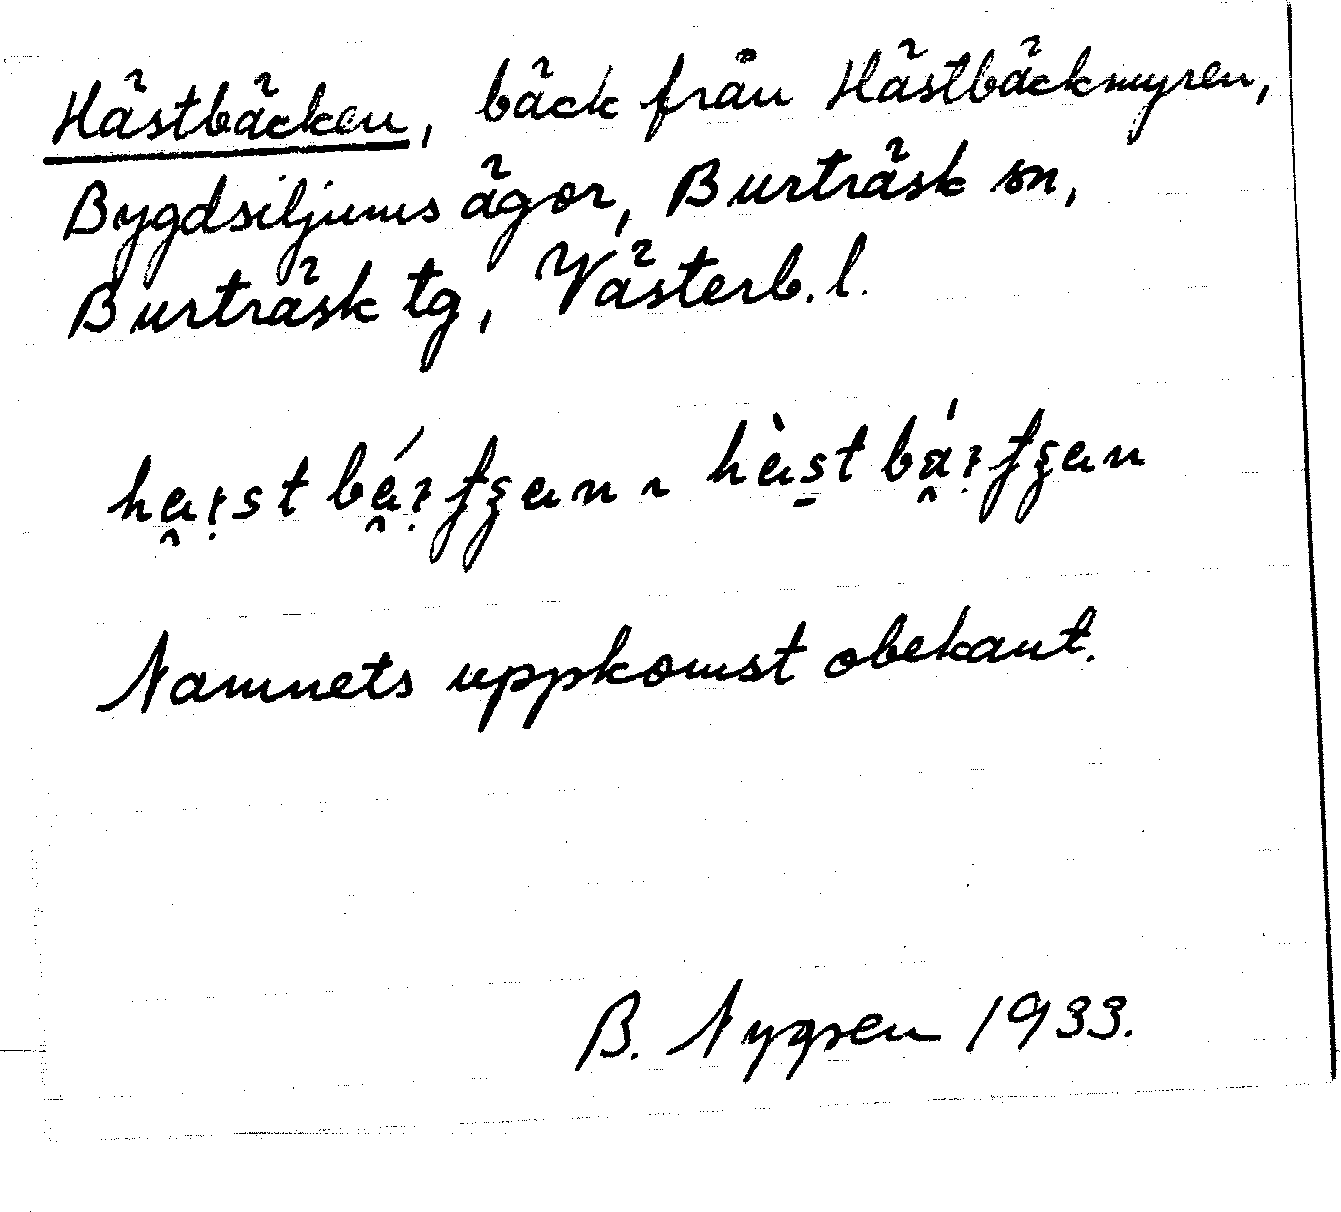 Hästbäcken, bäck från Hästbäckmyren,
Bygdsiljums ägor, Burträsk sn,
Burträsk tg, Västerb. l.
Namnets uppkomst obekant.
B. Nygren 1933.